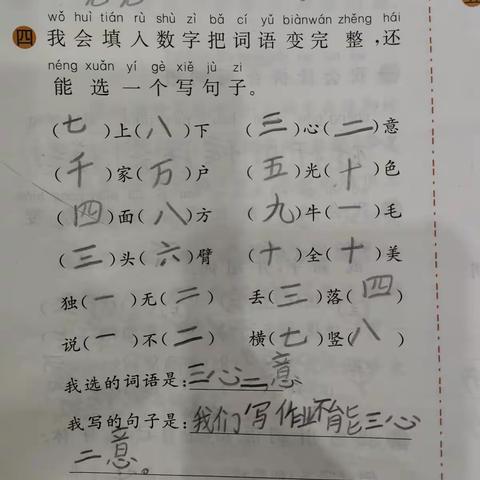 wǒ huì tián rù shù zì bǎ cí yǔ biànwán zhěng hái
四 我会填入数字把词语变完整,还
néng xuǎn yí gè xiě jù zi
能选一个写句子。
(七)上(八)下 (三)心(二)意
(千)家(万)户 (五)光(十)色
(四)面(八)方 (九)牛(一)毛
(三)头(六)臂 (十)全(十)美
独(一)无(二) 丢(三)落(四)
说(一)不(二) 横(七)竖(八)
我选的词语是:三心二意
我写的句子是:我们写作业不能三心
二意。